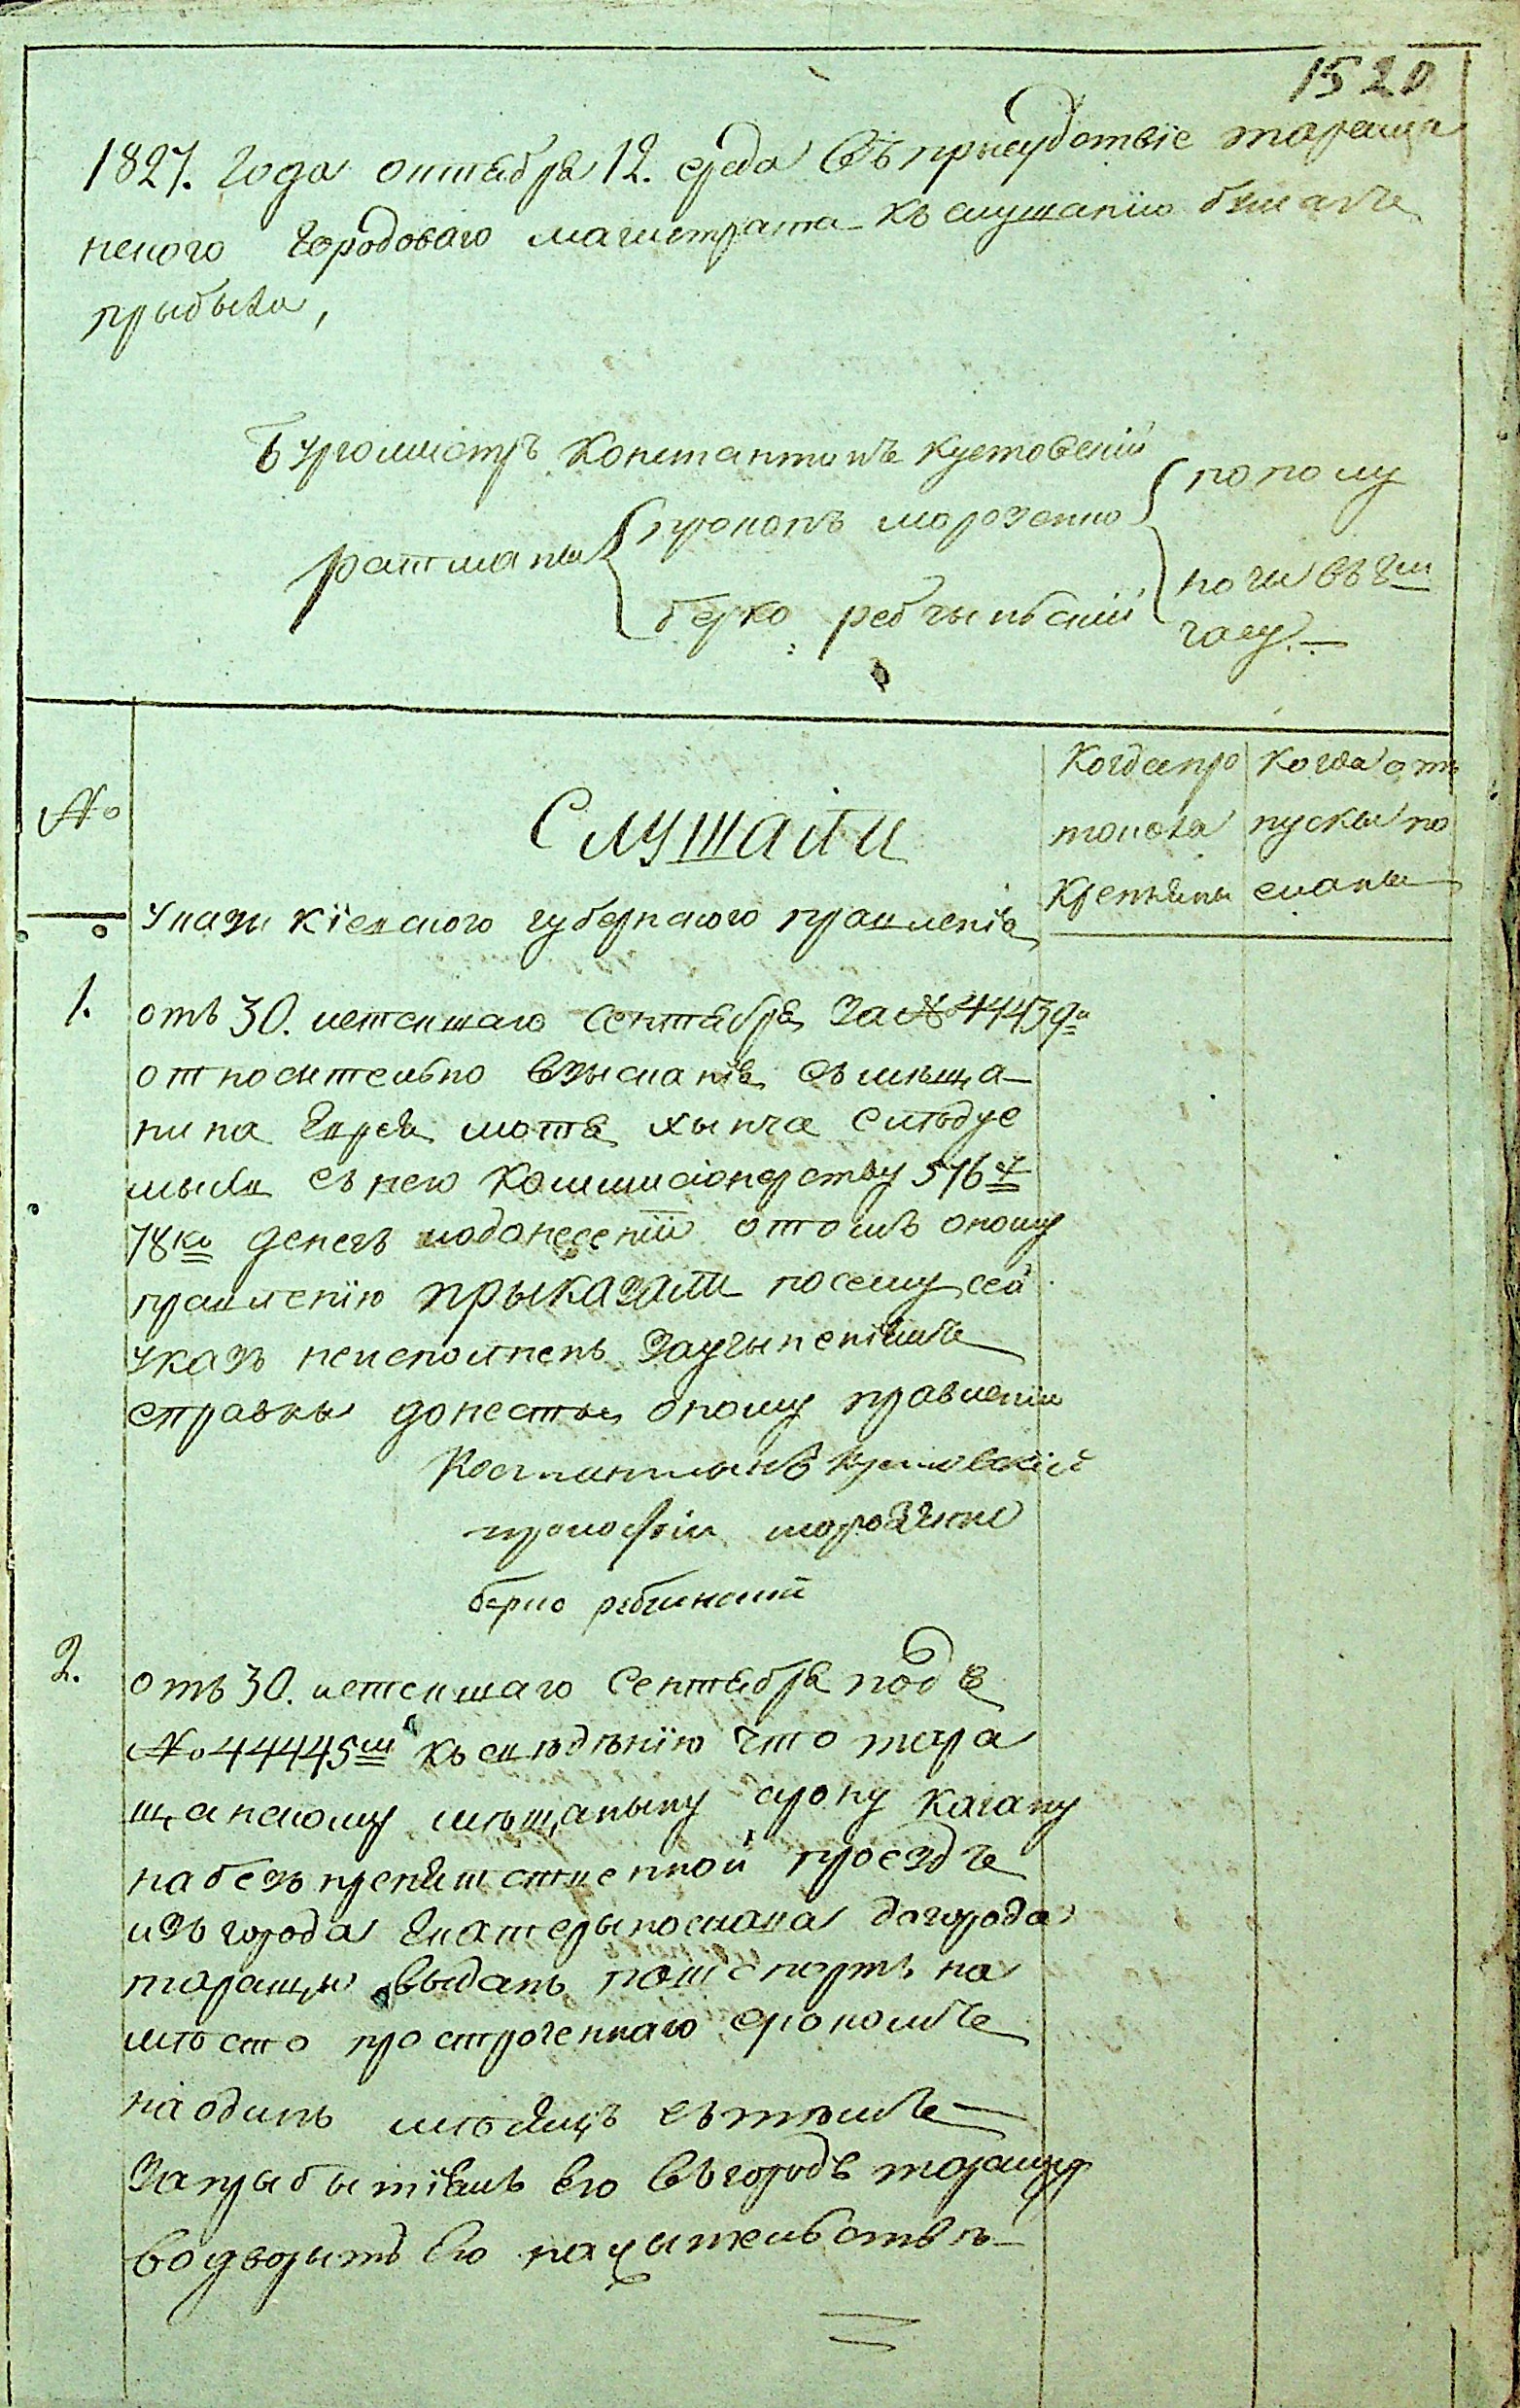 1520
1827. года октября 12. среда Въ присудствіе таращи
нского городоваго магистрата къ слушанію бумагъ
прыбыли,
Бургомистръ Константинъ Кустовскій
ратманы
прокопъ морозенко
берко ребчынский
по полу
ночи въ 8м
часу.
№
Слушали
Когда про
токола
Крепляны
Когда от
пуски по
сланы
Указы кіевского губернского правленія
1.
отъ 30. истекшаго Сентября За № 44439м
относительно взысканія съ мѣща-
нина Еврея мотя хынча Слѣдуе
мыхъ съ него Коммисіонерству 576 ч
78 ко денегъ и о донесеніи о томъ оному
правленію прыказали посему сей
указъ неисполненъ За учыненіемъ
справки донесть оному правленію
Костантынъ Кустовскій
прокофій морозенко
берко ребчинский
2.
отъ 30. истекшаго Сентября подъ
№ 44445м къ свѣдѣнію что тара
щанскому мѣщаныну срону Кагану
на безъ препятственной проездъ
изъ города Екатерынослава до города
таращи выдать пашспортъ на
мѣсто простроченнаго срокомъ
на одинъ мѣсяцъ съ тѣмъ
За прыбытіемъ его въ городъ таращу
водворыть Его на жительствѣ